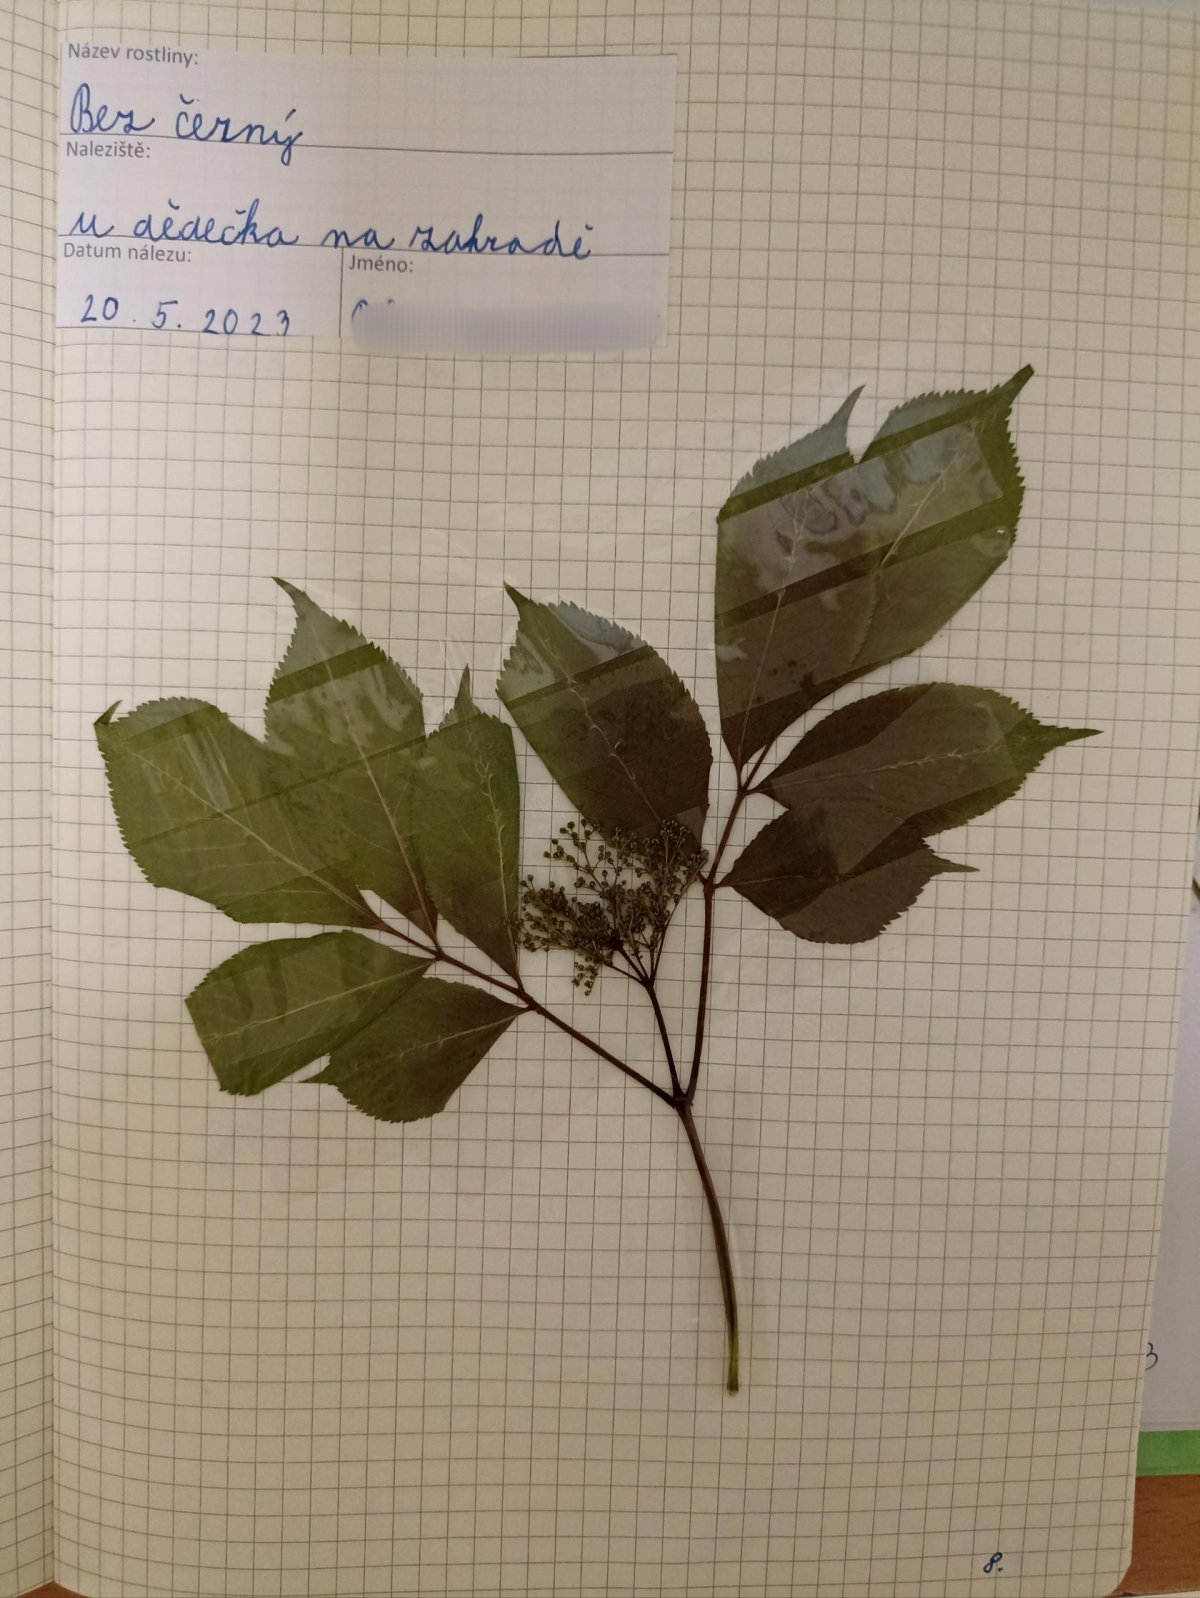 Název rostliny:
Bez černý
Naleziště:
u dědečka na zahradě
Datum nálezu:
Jméno:
20. 5. 2023
8.
3